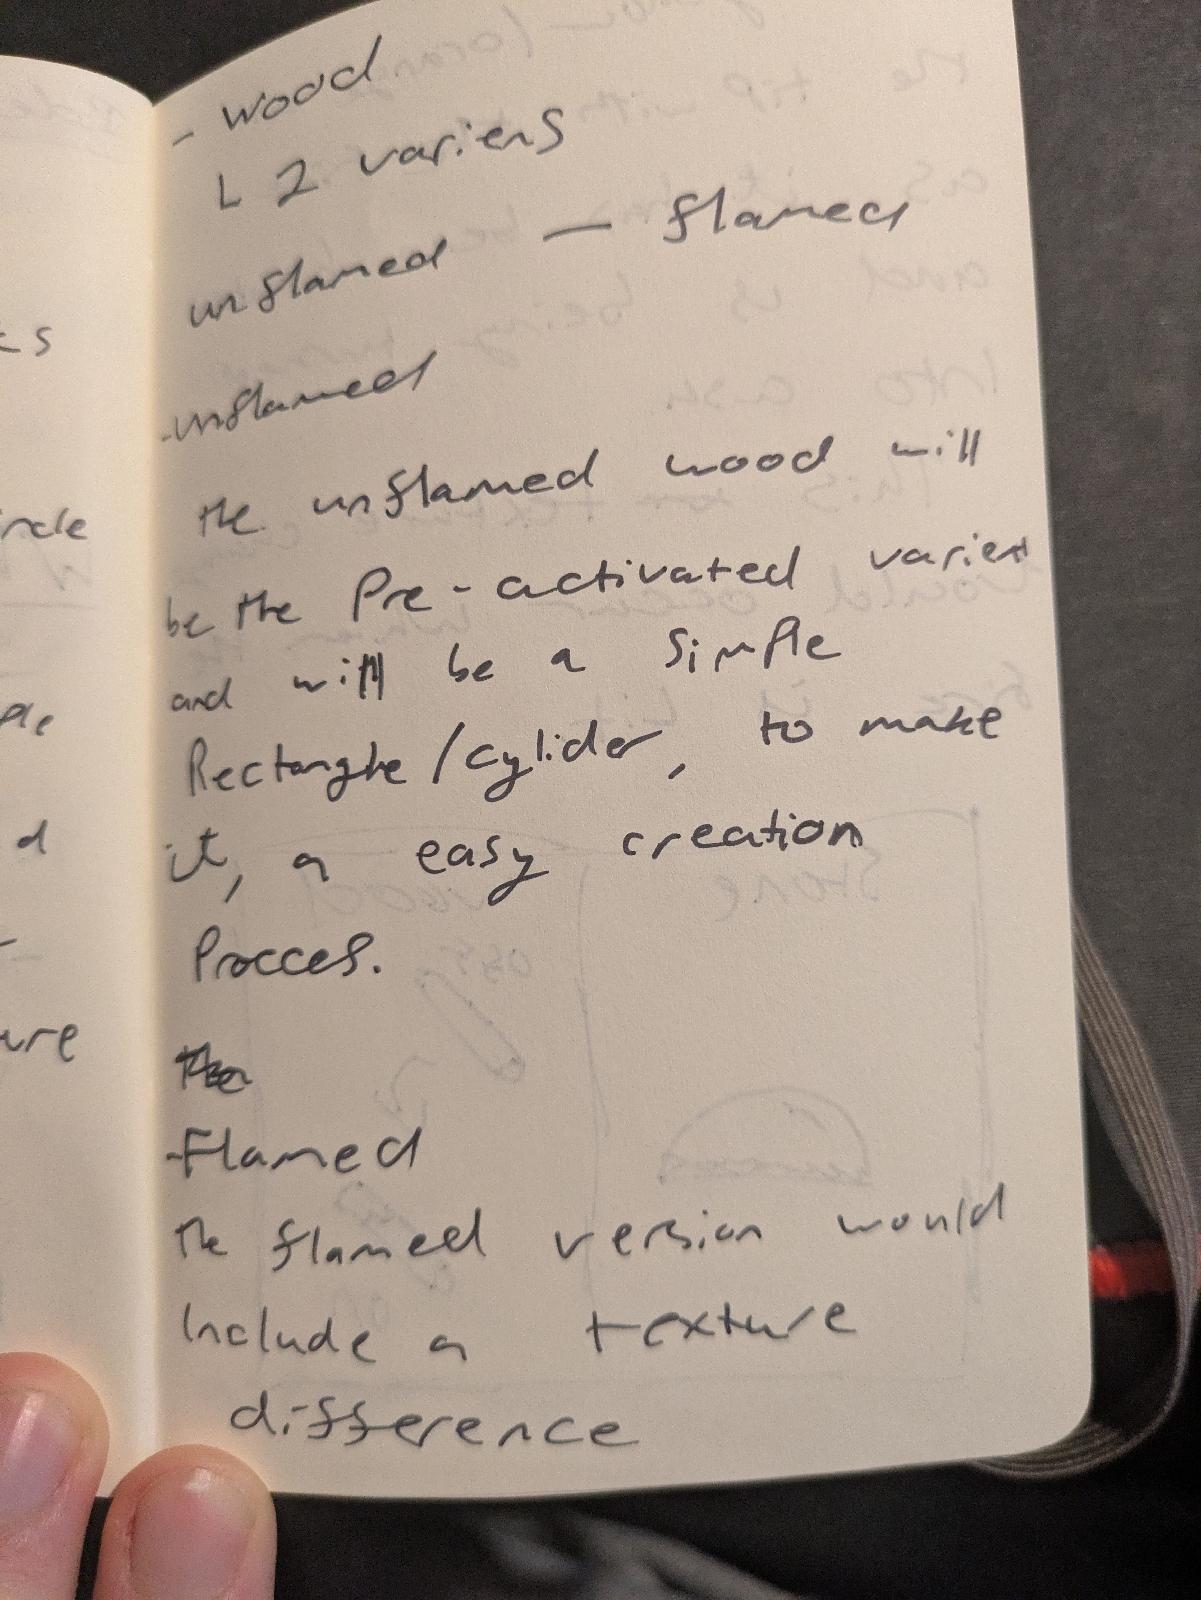 - wood
L 2 variens
unflamed — flamed
-unflamed
the unflamed wood will
be the Pre-activated varient
and will be a simple
Rectangle/cylider, to make
it, a easy creation
Procces.
the
-Flamed
the flamed version would
Include a texture
difference